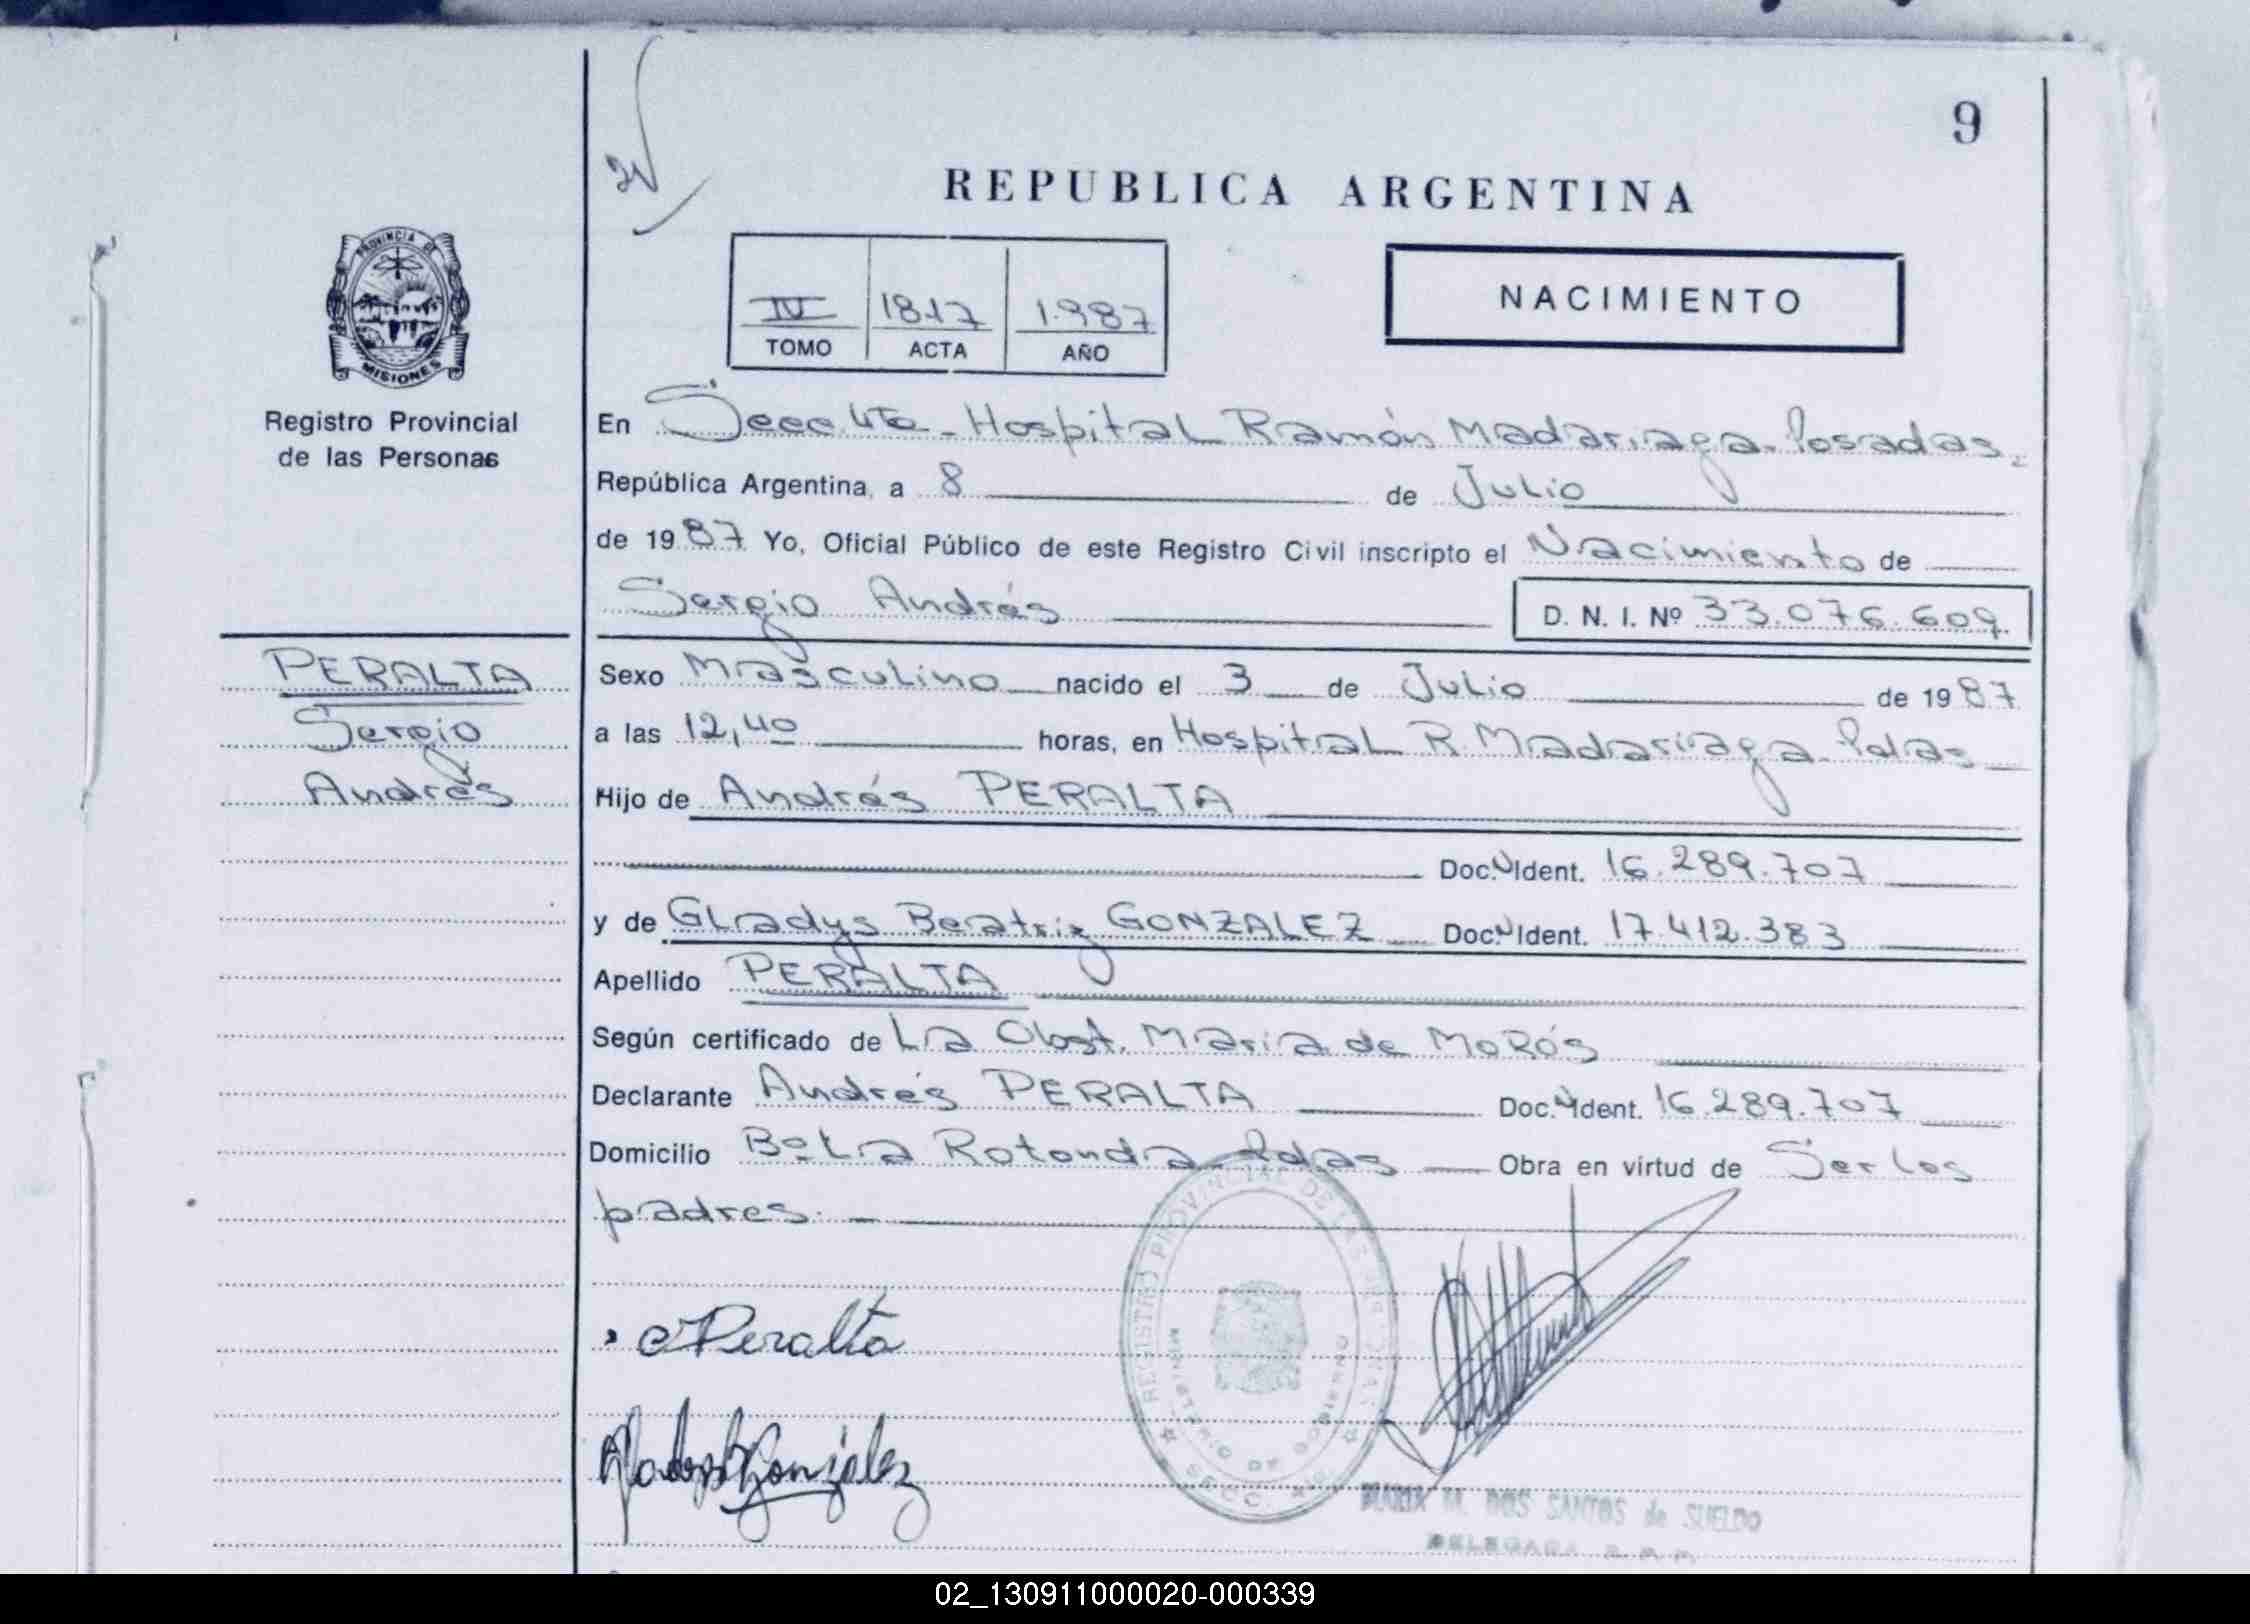 9
REPUBLICA ARGENTINA
PROVINCIA DE
MISIONES
Registro Provincial
de las Personas
IV 1817 1.987
TOMO ACTA AÑO
NACIMIENTO
En Secc 4ta - Hospital Ramón Madariaga - Posadas.
República Argentina, a 8 de Julio
de 1987 Yo, Oficial Público de este Registro Civil inscripto el Nacimiento de
Sergio Andrés
D. N. I. Nº 33.076.609
PERALTA
Sergio
Andrés
Sexo Masculino nacido el 3 de Julio de 1987
a las 12,40 horas, en Hospital R. Madariaga - Pdas
Hijo de Andrés PERALTA
Doc. Ident. 16.289.707
y de Gladys Beatriz GONZALEZ Doc. Ident. 17.412.383
Apellido PERALTA
Según certificado de La Obst. Maria de MoRós
Declarante Andrés PERALTA Doc. Ident. 16.289.707
Domicilio Bº La Rotonda - Pdas Obra en virtud de Ser los
padres.
Peralta
Gladys B Gonzalez
REGISTRO PROVINCIAL DE LAS PERSONAS
MINISTERIO DE GOBIERNO
SECC.
MARIA M. DOS SANTOS de SUELDO
DELEGADA
02_130911000020-000339